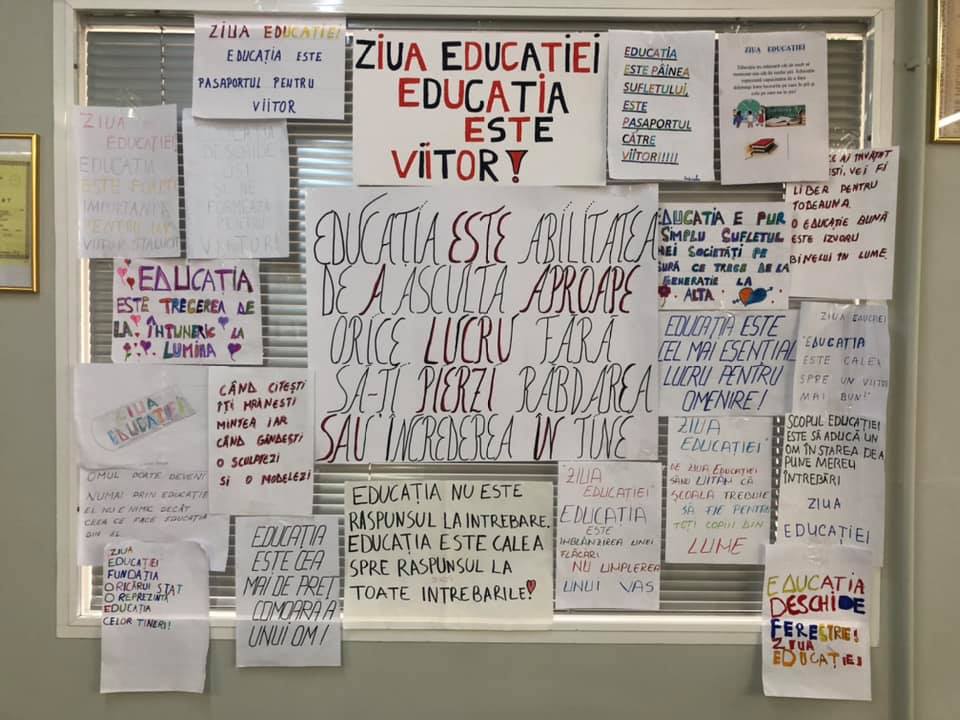 ZIUA EDUCAȚIEI
EDUCAȚIA ESTE
PASAPORTUL PENTRU
VIITOR
ZIUA EDUCATIEI
EDUCAȚIA
ESTE
VIITOR!
EDUCAȚIA
ESTE PÂINEA
SUFLETULUI,
ESTE
PAȘAPORTUL
CĂTRE
VIITOR!!!!!
ZIUA EDUCATIEI
ZIUA
EDUCAȚIEI
EDUCAȚIA
ESTE FOARTE
IMPORTANTĂ
PENTRU UN
VIITOR
DESCHIDE
UȘI
ȘI NE
FORMEAZĂ
PENTRU
VIITOR!
AI ÎNVĂȚAT
VEI FI
LIBER PENTRU
TODEAUNA.
O EDUCAȚIE BUNĂ
ESTE IZVORU
BINELUI ÎN LUME
EDUCAȚIA ESTE ABILITATEA
DE A ASCULTA APROAPE
ORICE LUCRU FĂRĂ
SĂ-ȚI PIERZI RĂBDAREA
SAU ÎNCREDEREA ÎN TINE
EDUCATIA E PUR
SIMPLU SUFLETUL
SOCIETĂȚI PE
CE TRECE DE LA
GENERATIE LA
ALTA
EDUCAȚIA
ESTE TREGEREA DE
LA ÎNTUNERIC LA
LUMINĂ
EDUCAȚIA ESTE
CEL MAI ESENȚIAL
LUCRU PENTRU
OMENIRE!
ZIUA EDUCAȚIEI
"EDUCAȚIA
ESTE CALEA
SPRE UN VIITOR
MAI BUN!"
ZIUA
EDUCAȚIEI
OMUL POATE DEVENI
NUMAI PRIN EDUCAȚIE
EL NU E NIMIC DECÂT
CEEA CE FACE EDUCAȚIA
DIN EL
CÂND CITEȘTI
ÎȚI HRĂNEȘTI
MINTEA IAR
CÂND GÂNDEȘTI
O SCULPTEZI
SI O MODELEZI
ZIUA
EDUCAȚIEI"
DE ZIUA EDUCAȚIEI
SĂ NU UITĂM CĂ
ȘCOALA TREBUIE
SĂ FIE PENTRU
TOȚI COPIII DIN
LUME
SCOPUL EDUCATIEI
ESTE SĂ ADUCĂ UN
OM ÎN STAREA DE A
PUNE MEREU
ÎNTREBĂRI
ZIUA
EDUCAȚIEI
"ZIUA
EDUCAȚIEI"
EDUCAȚIA
ESTE
ÎMBLÂNZIREA UNEI
FLĂCĂRI
NU UMPLEREA
UNUI VAS
EDUCAȚIA NU ESTE
RĂSPUNSUL LA INTREBARE.
EDUCAȚIA ESTE CALEA
SPRE RASPUNSUL LA
TOATE INTREBARILE!
ZIUA
EDUCAȚIEI
FUNDAȚIA
ORICĂRUI STAT
O REPREZINTĂ
EDUCAȚIA
CELOR TINERI!
EDUCAȚIA
ESTE CEA
MAI DE PREȚ
COMOARĂ A
UNUI OM!
EDUCAȚIA
DESCHIDE
FERESTRE!
ZIUA
EDUCAȚIEI